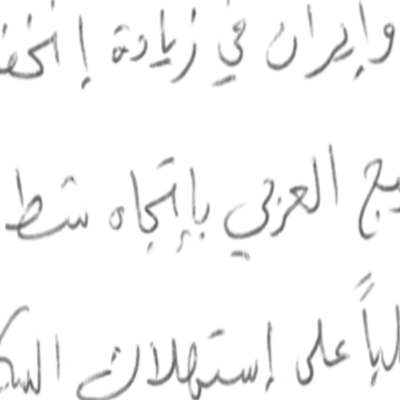 وإيران في زيادة إنخف
يج العربي بإتجاه شط
لباً على إستهلاك الس